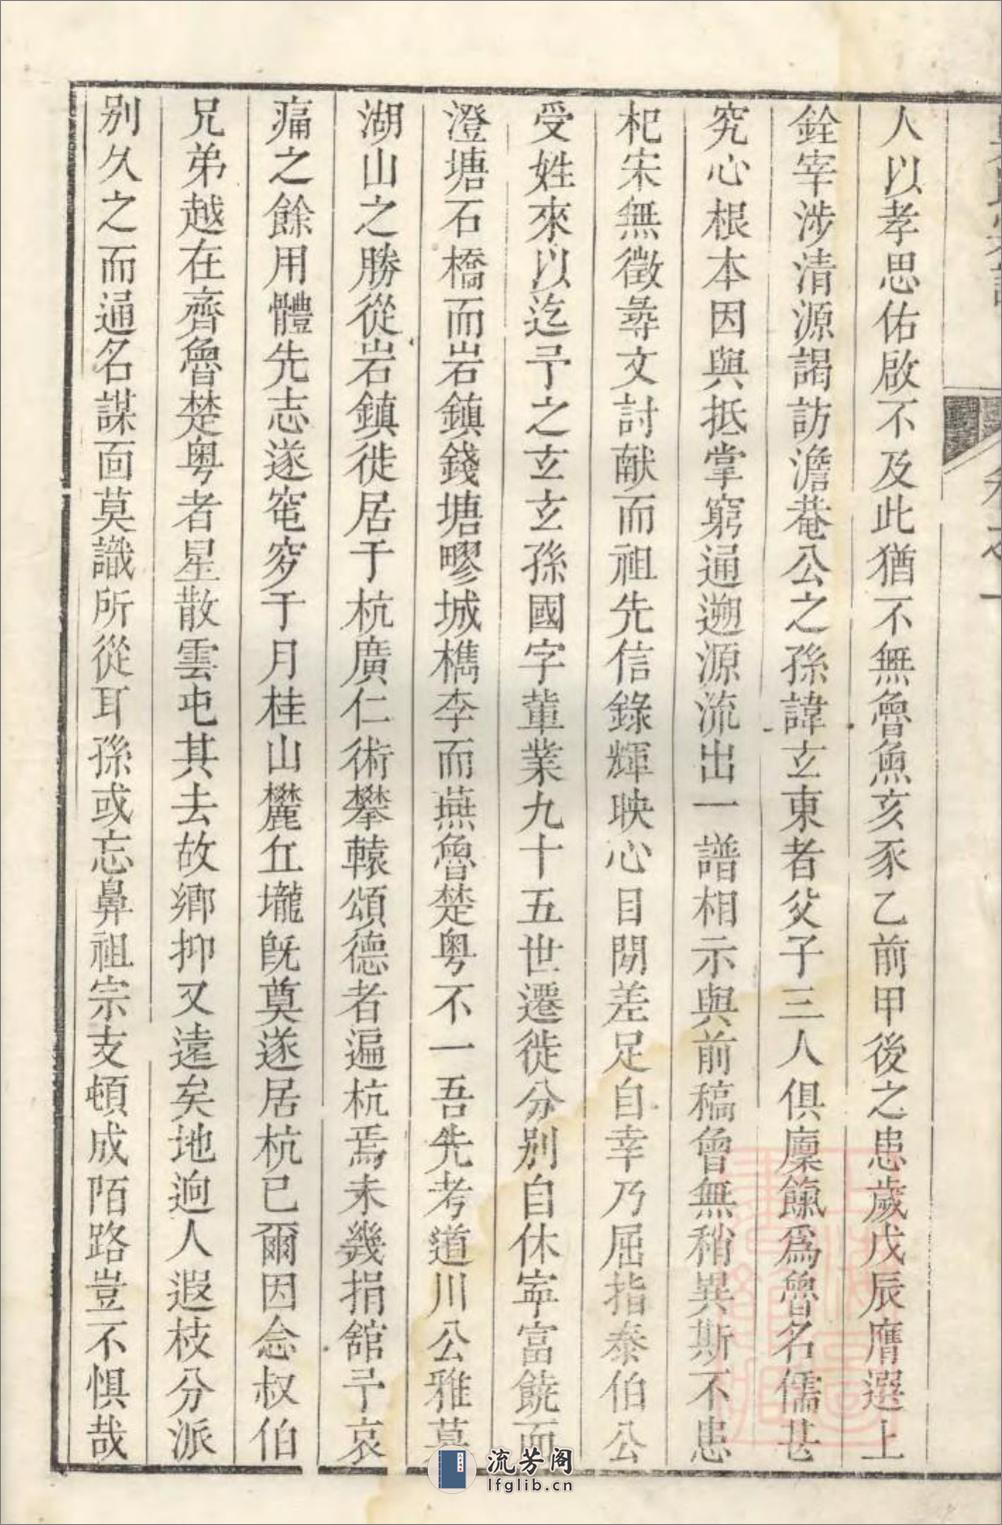 人以孝思佑啟不及此猶不無魯魚亥豕乙前甲後之患歲戊辰膺選上
銓宰涉清源謁訪澹菴公之孫諱玄東者父子三人俱廩餼爲魯名儒甚
究心根本因與抵掌窮通遡源流出一譜相示與前稿曾無稍異斯不患
杞宋無徵彛文討献而祖先信錄輝映心目間差足自幸乃屈指泰伯公
受姓來以迄予之玄玄孫國字軰業九十五世遷徙分别自休寧富饒而
澄塘石橋而岩鎮錢塘疁城檇李而蕪魯楚粤不一吾先考道川公雅慕
湖山之勝從岩鎮徙居于杭廣仁術攀轅頌德者遍杭焉未幾捐舘予哀
痛之餘用體先志遂窀穸于月桂山麓丘壠旣奠遂居杭已爾因念叔伯
兄弟越在齊魯楚粤者星散雲屯其去故鄉抑又遠矣地逈人遐枝分派
别久之而通名謀面莫識所從耳孫或忘鼻祖宗支頓成陌路豈不惧哉
卷之一
流芳阁
lfglib.cn